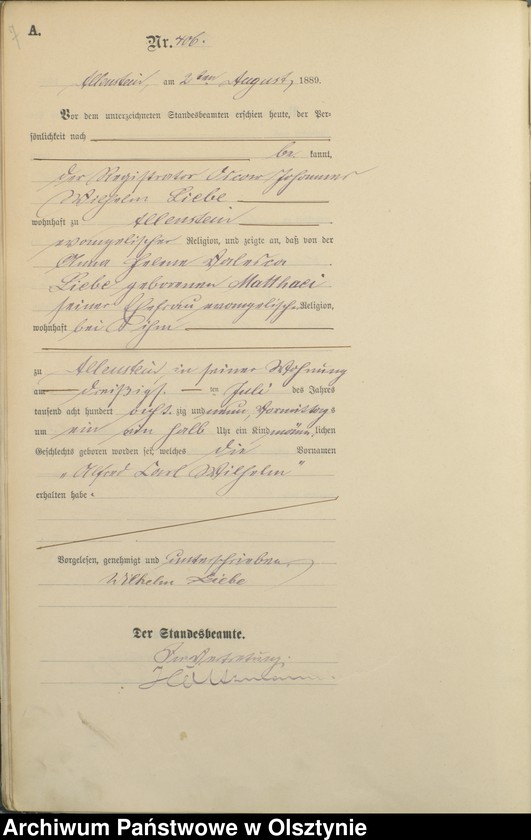 A.
Nr. 406.
Allenstein, am 2ten August 1889.
Vor dem unterzeichneten Standesbeamten erschien heute, der Per-
sönlichkeit nach
be kannt,
der Registrator Oscar Johannes
Wilhelm Liebe
wohnhaft zu Allenstein
evangelischer Religion, und zeigte an, daß von der
Anna Helene Valesca
Liebe geborenen Matthaei
seiner Ehefrau evangelisch. Religion,
wohnhaft bei ihm
zu Allenstein in seiner Wohnung
am dreißigst ten Juli des Jahres
tausend acht hundert acht zig und neun, Vormittags
um ein ein halb Uhr ein Kind männ lichen
Geschlechts geboren worden sei, welches die Vornamen
„Alfred Carl Wilhelm“
erhalten habe.
Vorgelesen, genehmigt und unterschrieben
Wilhelm Liebe
Der Standesbeamte.
In Vertretung.
Archiwum Państwowe w Olsztynie